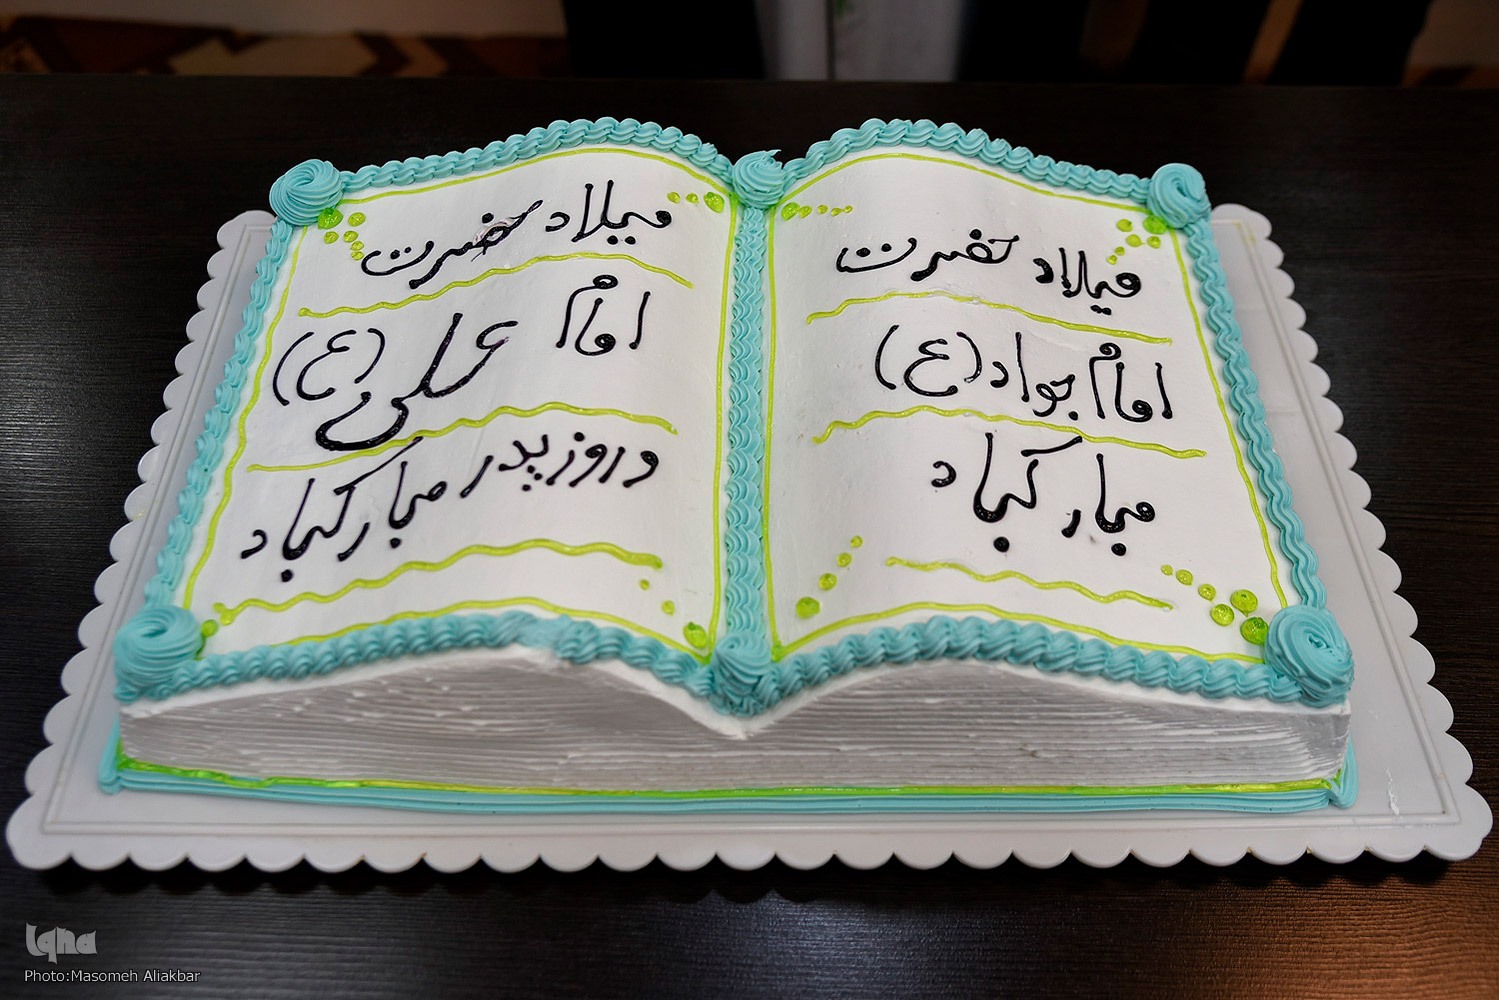 میلاد حضرت
امام جواد (ع)
مبارکباد
میلاد حضرت
امام علی (ع)
و روز پدر مبارکباد
Iqna
Photo:Masomeh Aliakbar